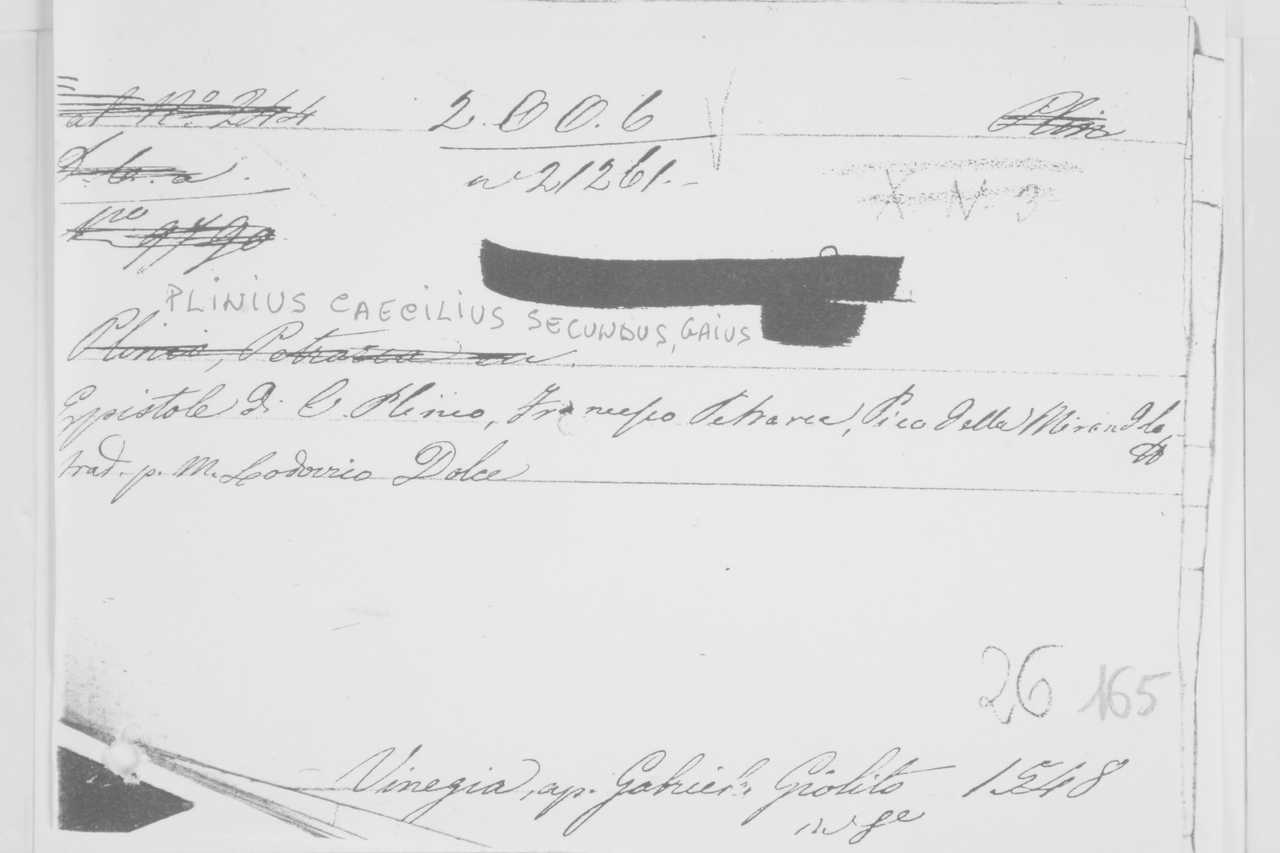 al N.o 2044
2.00.6
Plin
D. b. a.
n 21261.-
X N. 3
9790
PLINIUS CAECILIUS SECUNDUS, GAIUS
Plinio, Petrarca ecc.
Epistole di C. Plinio, Francesco Petrarca, Pico della Mirandola
trad. p. M. Lodovico Dolce
26 165
Vinegia, ap. Gabriel Giolito 1548
in 8e